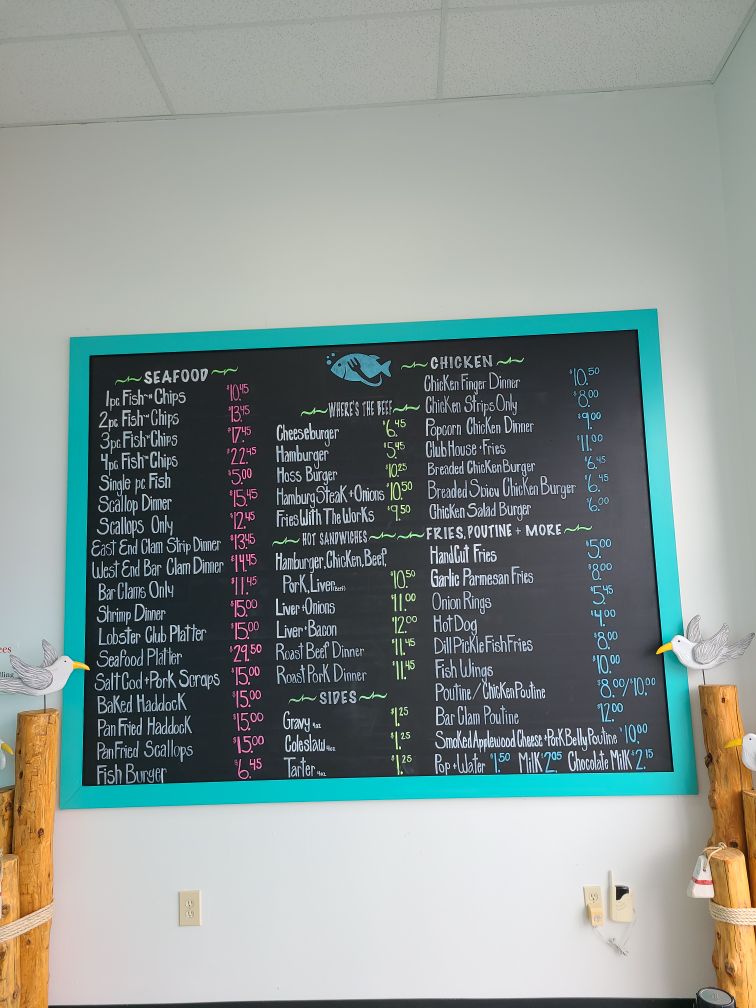 SEAFOOD
1pc Fish "n" Chips $10.45
2pc Fish "n" Chips $13.45
3pc Fish "n" Chips $17.45
4pc Fish "n" Chips $22.45
Single pc Fish $5.00
Scallop Dinner $15.45
Scallops Only $12.45
East End Clam Strip Dinner $13.45
West End Bar Clam Dinner $14.45
Bar Clams Only $11.45
Shrimp Dinner $15.00
Lobster Club Platter $15.00
Seafood Platter $29.50
Salt Cod + Pork Scraps $15.00
Baked Haddock $15.00
Pan Fried Haddock $15.00
Pan Fried Scallops $15.00
Fish Burger $6.45
WHERE'S THE BEEF
Cheeseburger $6.45
Hamburger $5.45
Hoss Burger $10.25
Hamburg Steak + Onions $10.50
Fries With The Works $9.50
HOT SANDWICHES
Hamburger, Chicken, Beef,
Pork, Liver $10.50
Liver + Onions $11.00
Liver + Bacon $12.00
Roast Beef Dinner $11.45
Roast Pork Dinner $11.45
SIDES
Gravy 4oz $1.25
Coleslaw 4oz $1.25
Tarter 4oz $1.25
CHICKEN
Chicken Finger Dinner $10.50
Chicken Strips Only $8.00
Popcorn Chicken Dinner $9.00
Club House + Fries $11.00
Breaded Chicken Burger $6.45
Breaded Spicy Chicken Burger $6.45
Chicken Salad Burger $6.00
FRIES, POUTINE + MORE
Hand Cut Fries $5.00
Garlic Parmesan Fries $8.00
Onion Rings $5.45
Hot Dog $4.00
Dill Pickle Fish Fries $8.00
Fish Wings $10.00
Poutine / Chicken Poutine $8.00/$10.00
Bar Clam Poutine $12.00
Smoked Applewood Cheese + Pork Belly Poutine $10.00
Pop + Water $1.50 Milk $2.05 Chocolate Milk $2.15